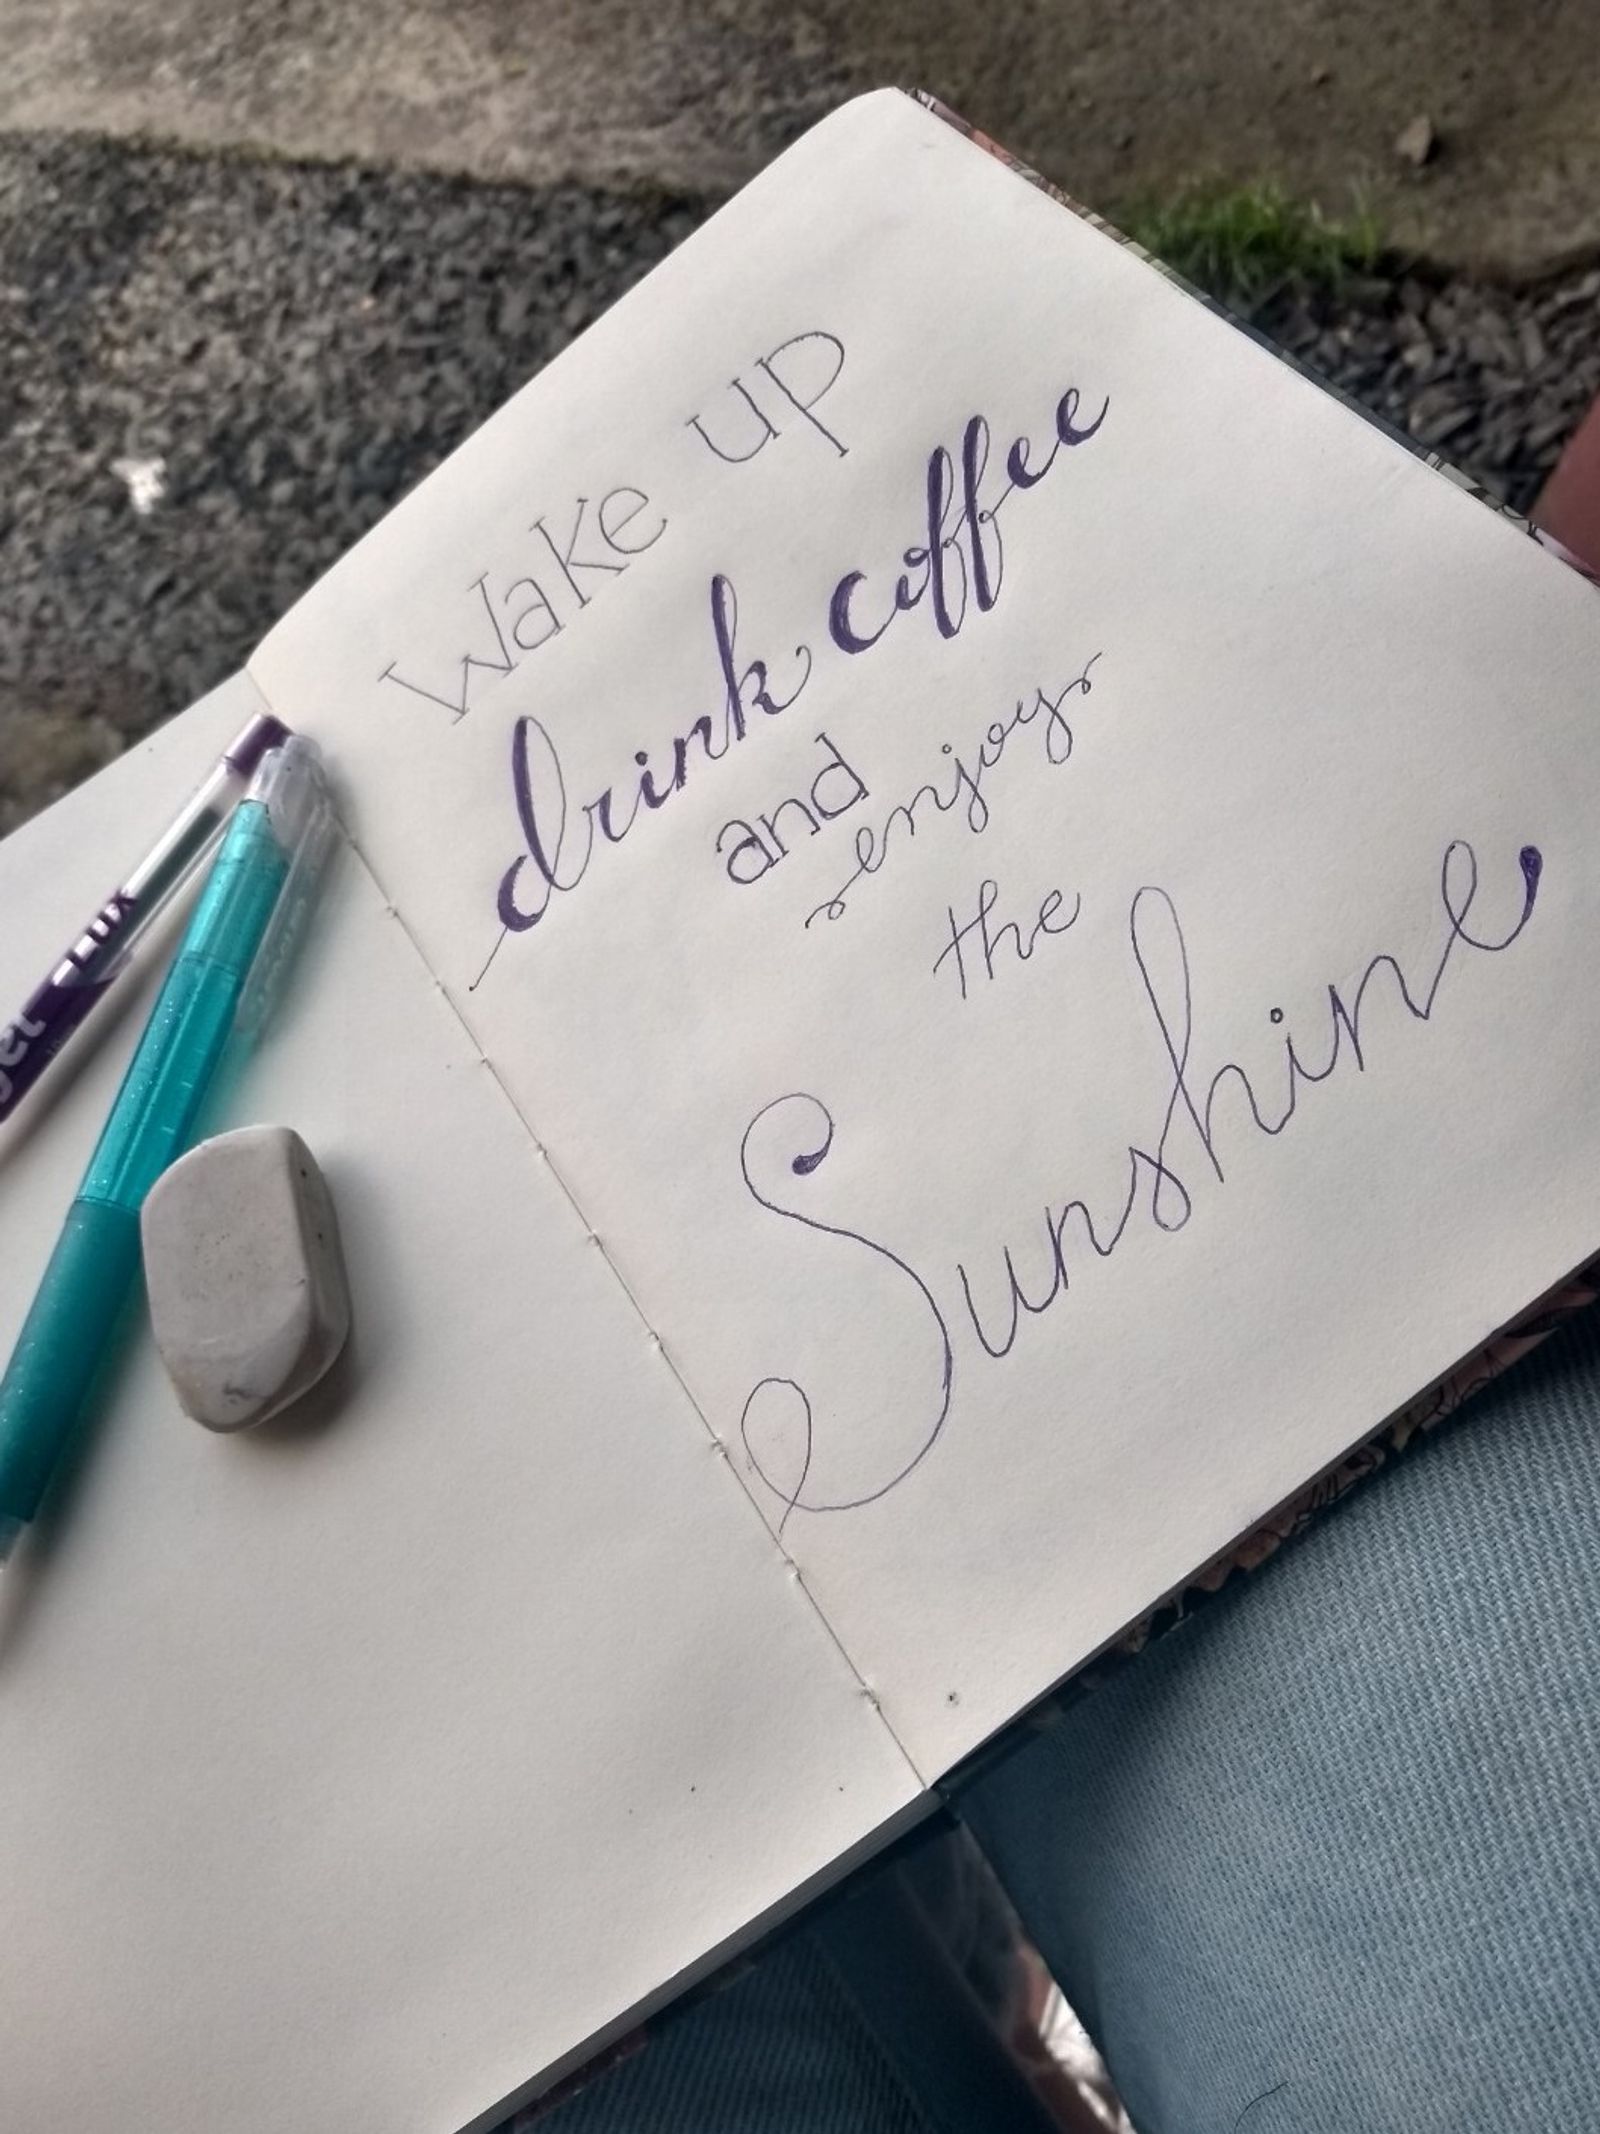 Wake up
drink coffee
and
enjoy
the
Sunshine
gel LUX